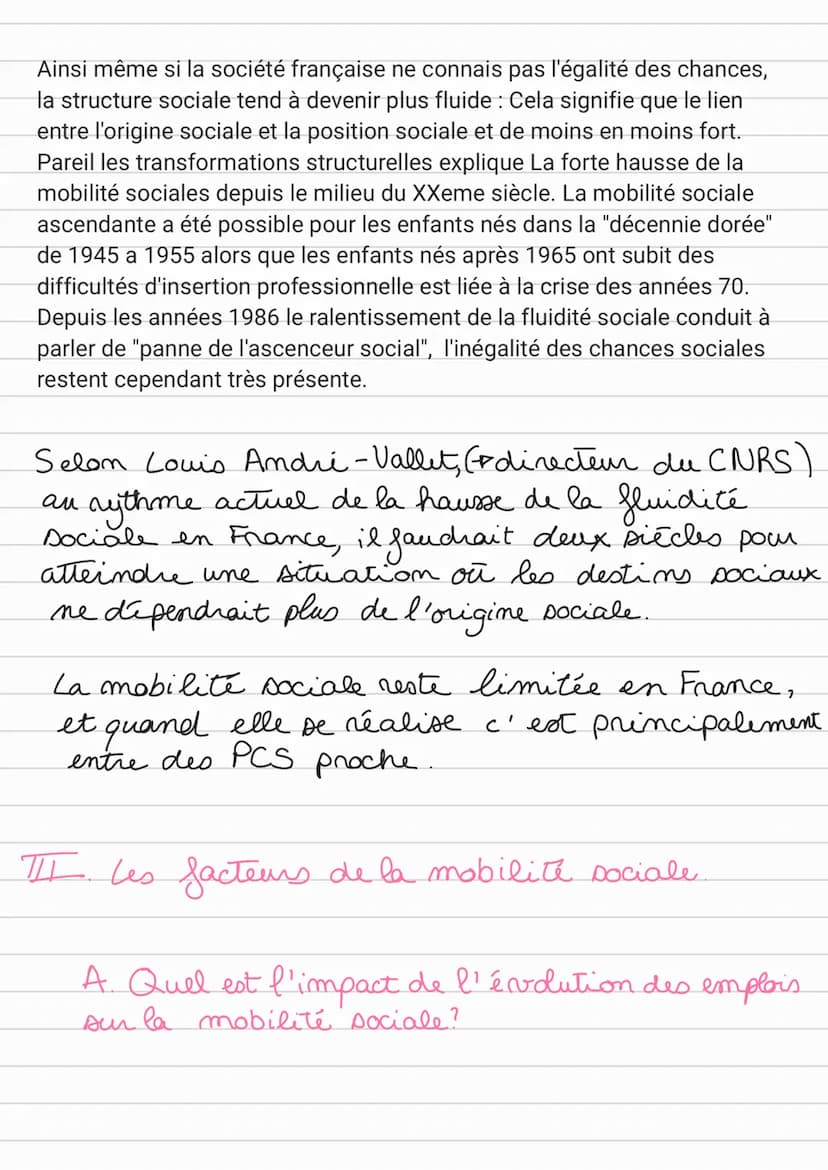 Ainsi même si la société française ne connais pas l'égalité des chances,
la structure sociale tend à devenir plus fluide : Cela signifie que le lien
entre l'origine sociale et la position sociale et de moins en moins fort.
Pareil les transformations structurelles explique La forte hausse de la
mobilité sociales depuis le milieu du XXeme siècle. La mobilité sociale
ascendante a été possible pour les enfants nés dans la "décennie dorée"
de 1945 a 1955 alors que les enfants nés après 1965 ont subit des
difficultés d'insertion professionnelle est liée à la crise des années 70.
Depuis les années 1986 le ralentissement de la fluidité sociale conduit à
parler de "panne de l'ascenceur social", l'inégalité des chances sociales
restent cependant très présente.
Selon Louis André-Vallet, (→ directeur du CNRS)
au rythme actuel de la hausse de la fluidité
sociale en France, il faudrait deux siècles pour
atteindre une situation où les destins sociaux
ne dépendrait plus de l'origine sociale.
La mobilité sociale reste limitée en France,
et quand elle se réalise c'est principalement
entre des PCS proche.
III. Les facteurs de la mobilité sociale.
A. Quel est l'impact de l'évolution des emplois
sur la mobilité sociale?